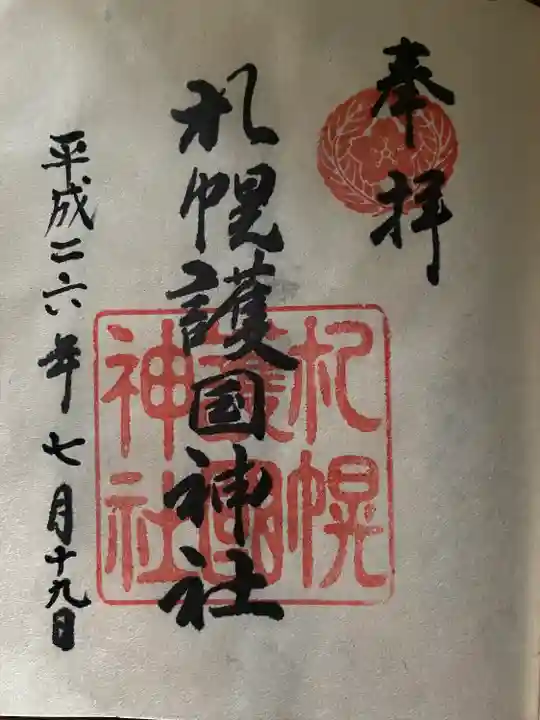 奉拝
札幌護国神社
札幌
護國
神社
平成二六年七月十九日